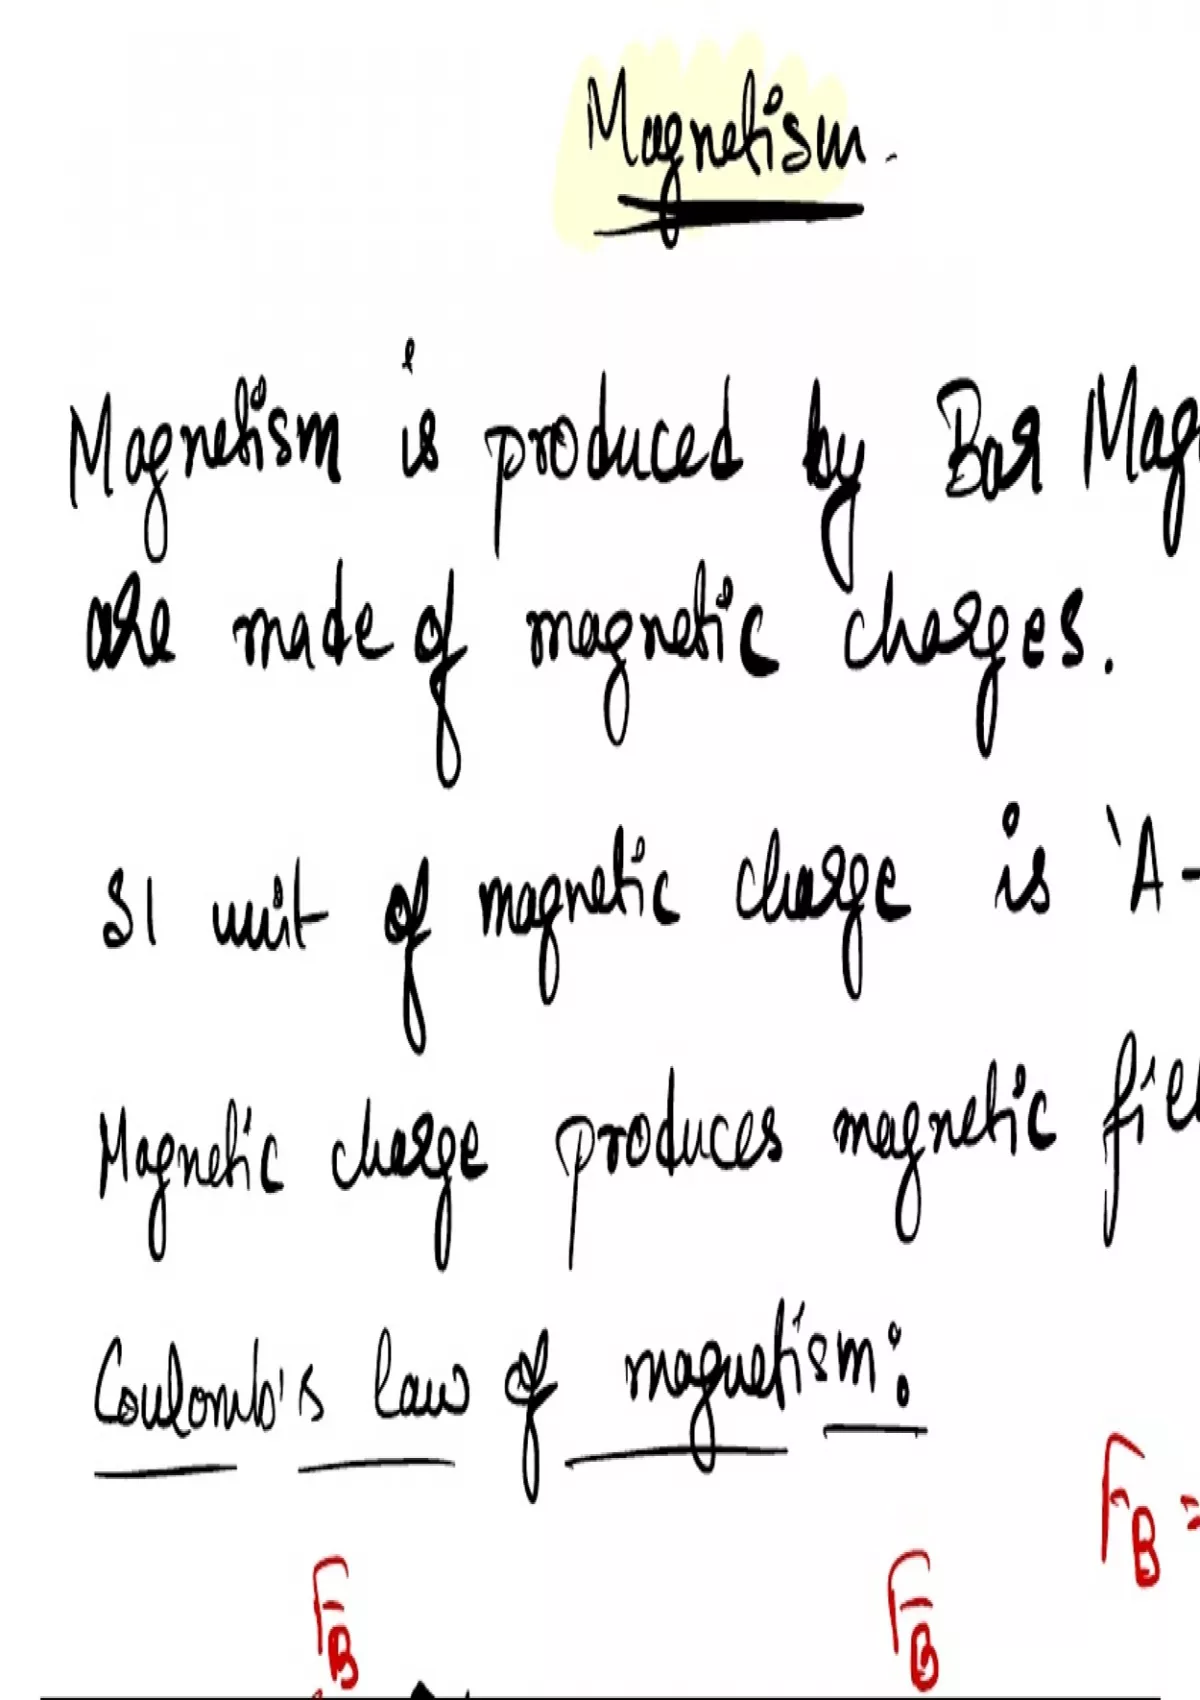 Magnetism.
Magnetism is produced by Bar Mag
are made of magnetic charges.
SI unit of magnetic charge is 'A-
Magnetic charge produces magnetic fie
Coulomb's law of magnetism:
F_B =
F_B F_B